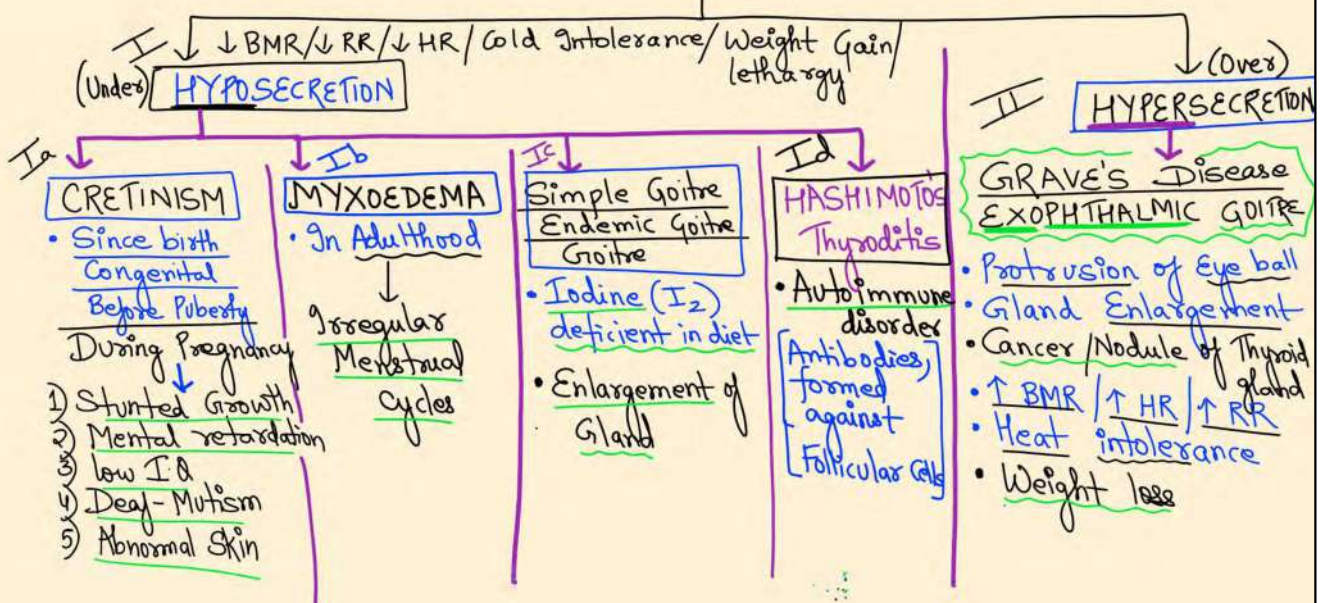 I ↓ BMR/↓ RR/↓ HR/ Cold Intolerance/ Weight Gain/
lethargy
(Under) HYPOSECRETION
Ia
CRETINISM
• Since birth
Congenital
Before Puberty
During Pregnancy
1) Stunted Growth
2) Mental retardation
3) low IQ
4) Deaf-Mutism
5) Abnormal Skin
Ib
MYXOEDEMA
• In Adulthood
Irregular
Menstrual
cycles
Ic
Simple Goitre
Endemic Goitre
Goitre
• Iodine (I₂)
deficient in diet
• Enlargement of
Gland
Id
HASHIMOTO'S
Thyroditis
• Autoimmune
disorder
Antibodies,
formed
against
Follicular Cells
II
(Over)
HYPERSECRETION
GRAVE'S Disease
EXOPHTHALMIC GOITRE
• Protrusion of Eye ball
• Gland Enlargement
• Cancer/Nodule of Thyroid
gland
• ↑ BMR/↑ HR/↑ RR
• Heat intolerance
• Weight loss